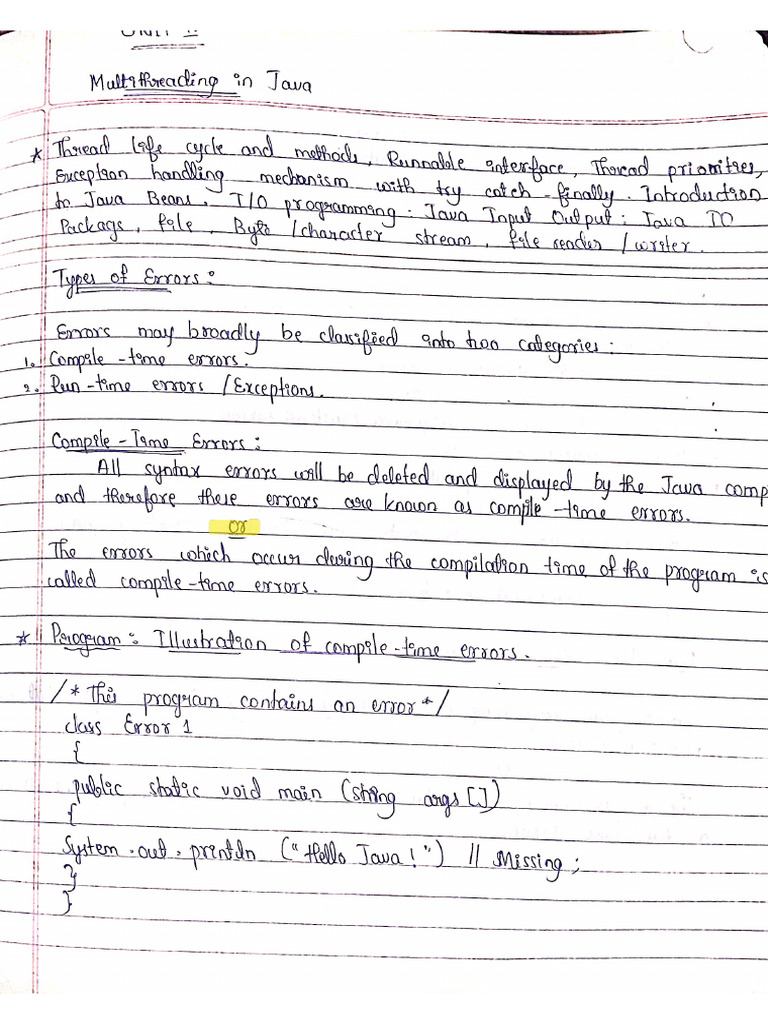 UNIT II
Multithreading in Java
* Thread life cycle and methods, Runnable interface, Thread priorities,
Exception handling mechanism with try catch-finally. Introduction
to Java Beans, I/O programming: Java Input Output: Java IO
Package, File, Byte/character stream, file reader/writer.
Types of Errors:
Errors may broadly be classified into two categories:
1. Compile-time errors.
2. Run-time errors/Exceptions.
Compile-Time Errors:
All syntax errors will be deleted and displayed by the Java comp
and therefore these errors are known as compile-time errors.
or
The errors which occur during the compilation time of the program is
called compile-time errors.
* Program: Illustration of compile-time errors.
/*This program contains an error*/
class Error 1
{
public static void main (string args[])
{
System.out.println ("Hello Java!") // Missing;
}
}